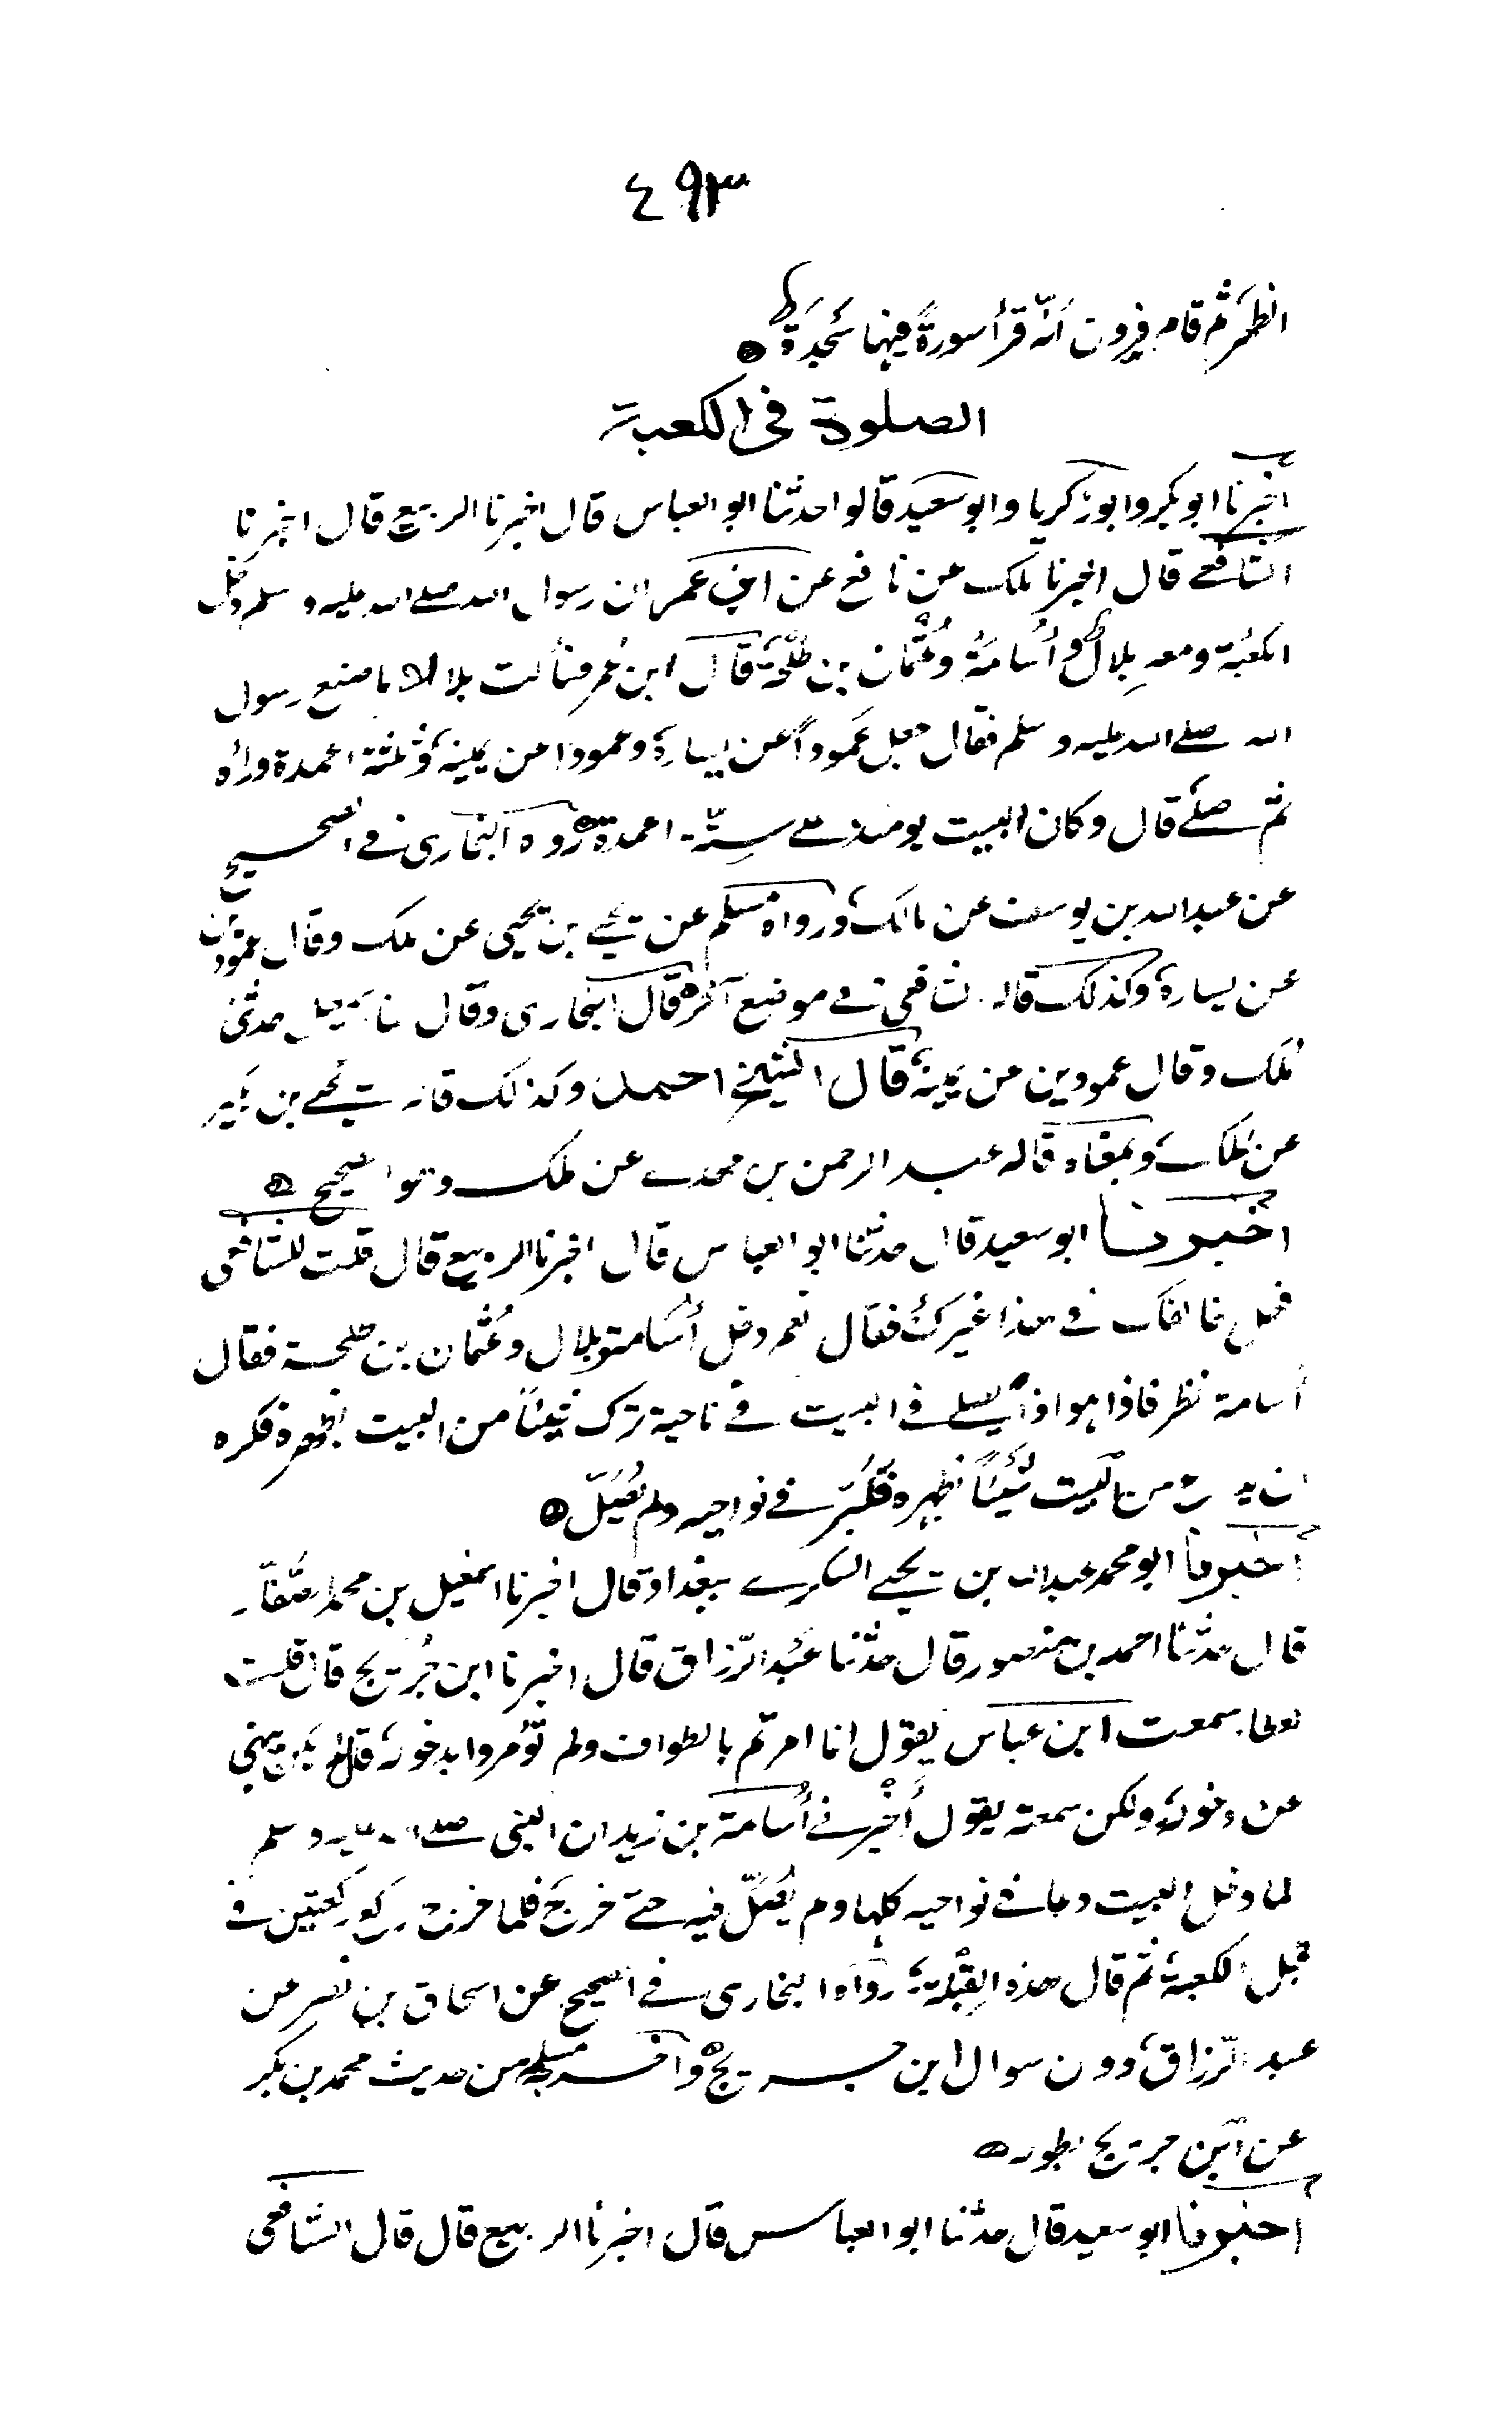 ٤٩٣
الظهر ثم قام فيرون أنّه قرأ سورةً فيها سَجدَة
الصلوة في الكعبة
اخبرنا ابو بكر وابو زكريا وابو سعيد قالوا حدثنا ابو العباس قال اخبرنا الربيع قال اخبرنا
الشافعي قال اخبرنا ملك عن نافع عن ابن عمر ان رسول الله صلى الله عليه وسلم دخل
الكعبة ومعه بلال وأسامة وعثمان بن طلحة قال ابن عمر فسألت بلالا ما صنع رسول
الله صلى الله عليه وسلم فقال جعل عموداً عن يساره وعمودا عن يمينه وثلثة اعمدة وراه
ثم صلى قال وكان البيت يومئذ على ستّة اعمدة رواه البخاري في الصحيح
عن عبد الله بن يوسف عن مالك ورواه مسلم عن يحيى بن يحيى عن ملك وقال عمودين
عن يساره وكذلك قاله الشافعي في موضع آخر قال البخاري وقال لنا اسمعيل حدثني
ملك وقال عمودين عن يمينه قال الشيخ احمد وكذلك قاله يحيى بن بكير
عن ملك وبمعناه قاله عبد الرحمن بن مهدي عن ملك وهو الصحيح
اخبرنا ابو سعيد قال حدثنا ابو العباس قال اخبرنا الربيع قال قلت للشافعي
فهل خالفك في هذا غيرك فقال نعم دخل أسامة وبلال وعثمان بن طلحة فقال
أسامة نظر فاذا هو اذا صلى في البيت في ناحية ترك شيئاً من البيت بظهره فكره
ان يدع من البيت شيئاً بظهره فكبّر في نواحيه ولم يصلّ
اخبرنا ابو محمد عبد الله بن يحيى السكري ببغداد قال اخبرنا اسمعيل بن محمد الصفّار
قال حدثنا احمد بن منصور قال حدثنا عبد الرّزاق قال اخبرنا ابن جُريج قال قلت
لعطا سمعت ابن عباس يقول انما امرتم بالطواف ولم تؤمروا بدخوله قال لم يكن ينهى
عن دخوله ولكن سمعته يقول أخبرني أسامة بن زيد ان النبي صلى الله عليه وسلم
لما دخل البيت دعا في نواحيه كلها ولم يصلّ فيه حتى خرج فلما خرج ركع ركعتين في
قبل الكعبة ثم قال هذه القبلة رواه البخاري في الصحيح عن اسحاق بن نصر عن
عبد الرّزاق دون سوال ابن جريج واخرجه مسلم من حديث محمد بن بكر
عن ابن جريج بطوله
اخبرنا ابو سعيد قال حدثنا ابو العباس قال اخبرنا الربيع قال قال الشافعي